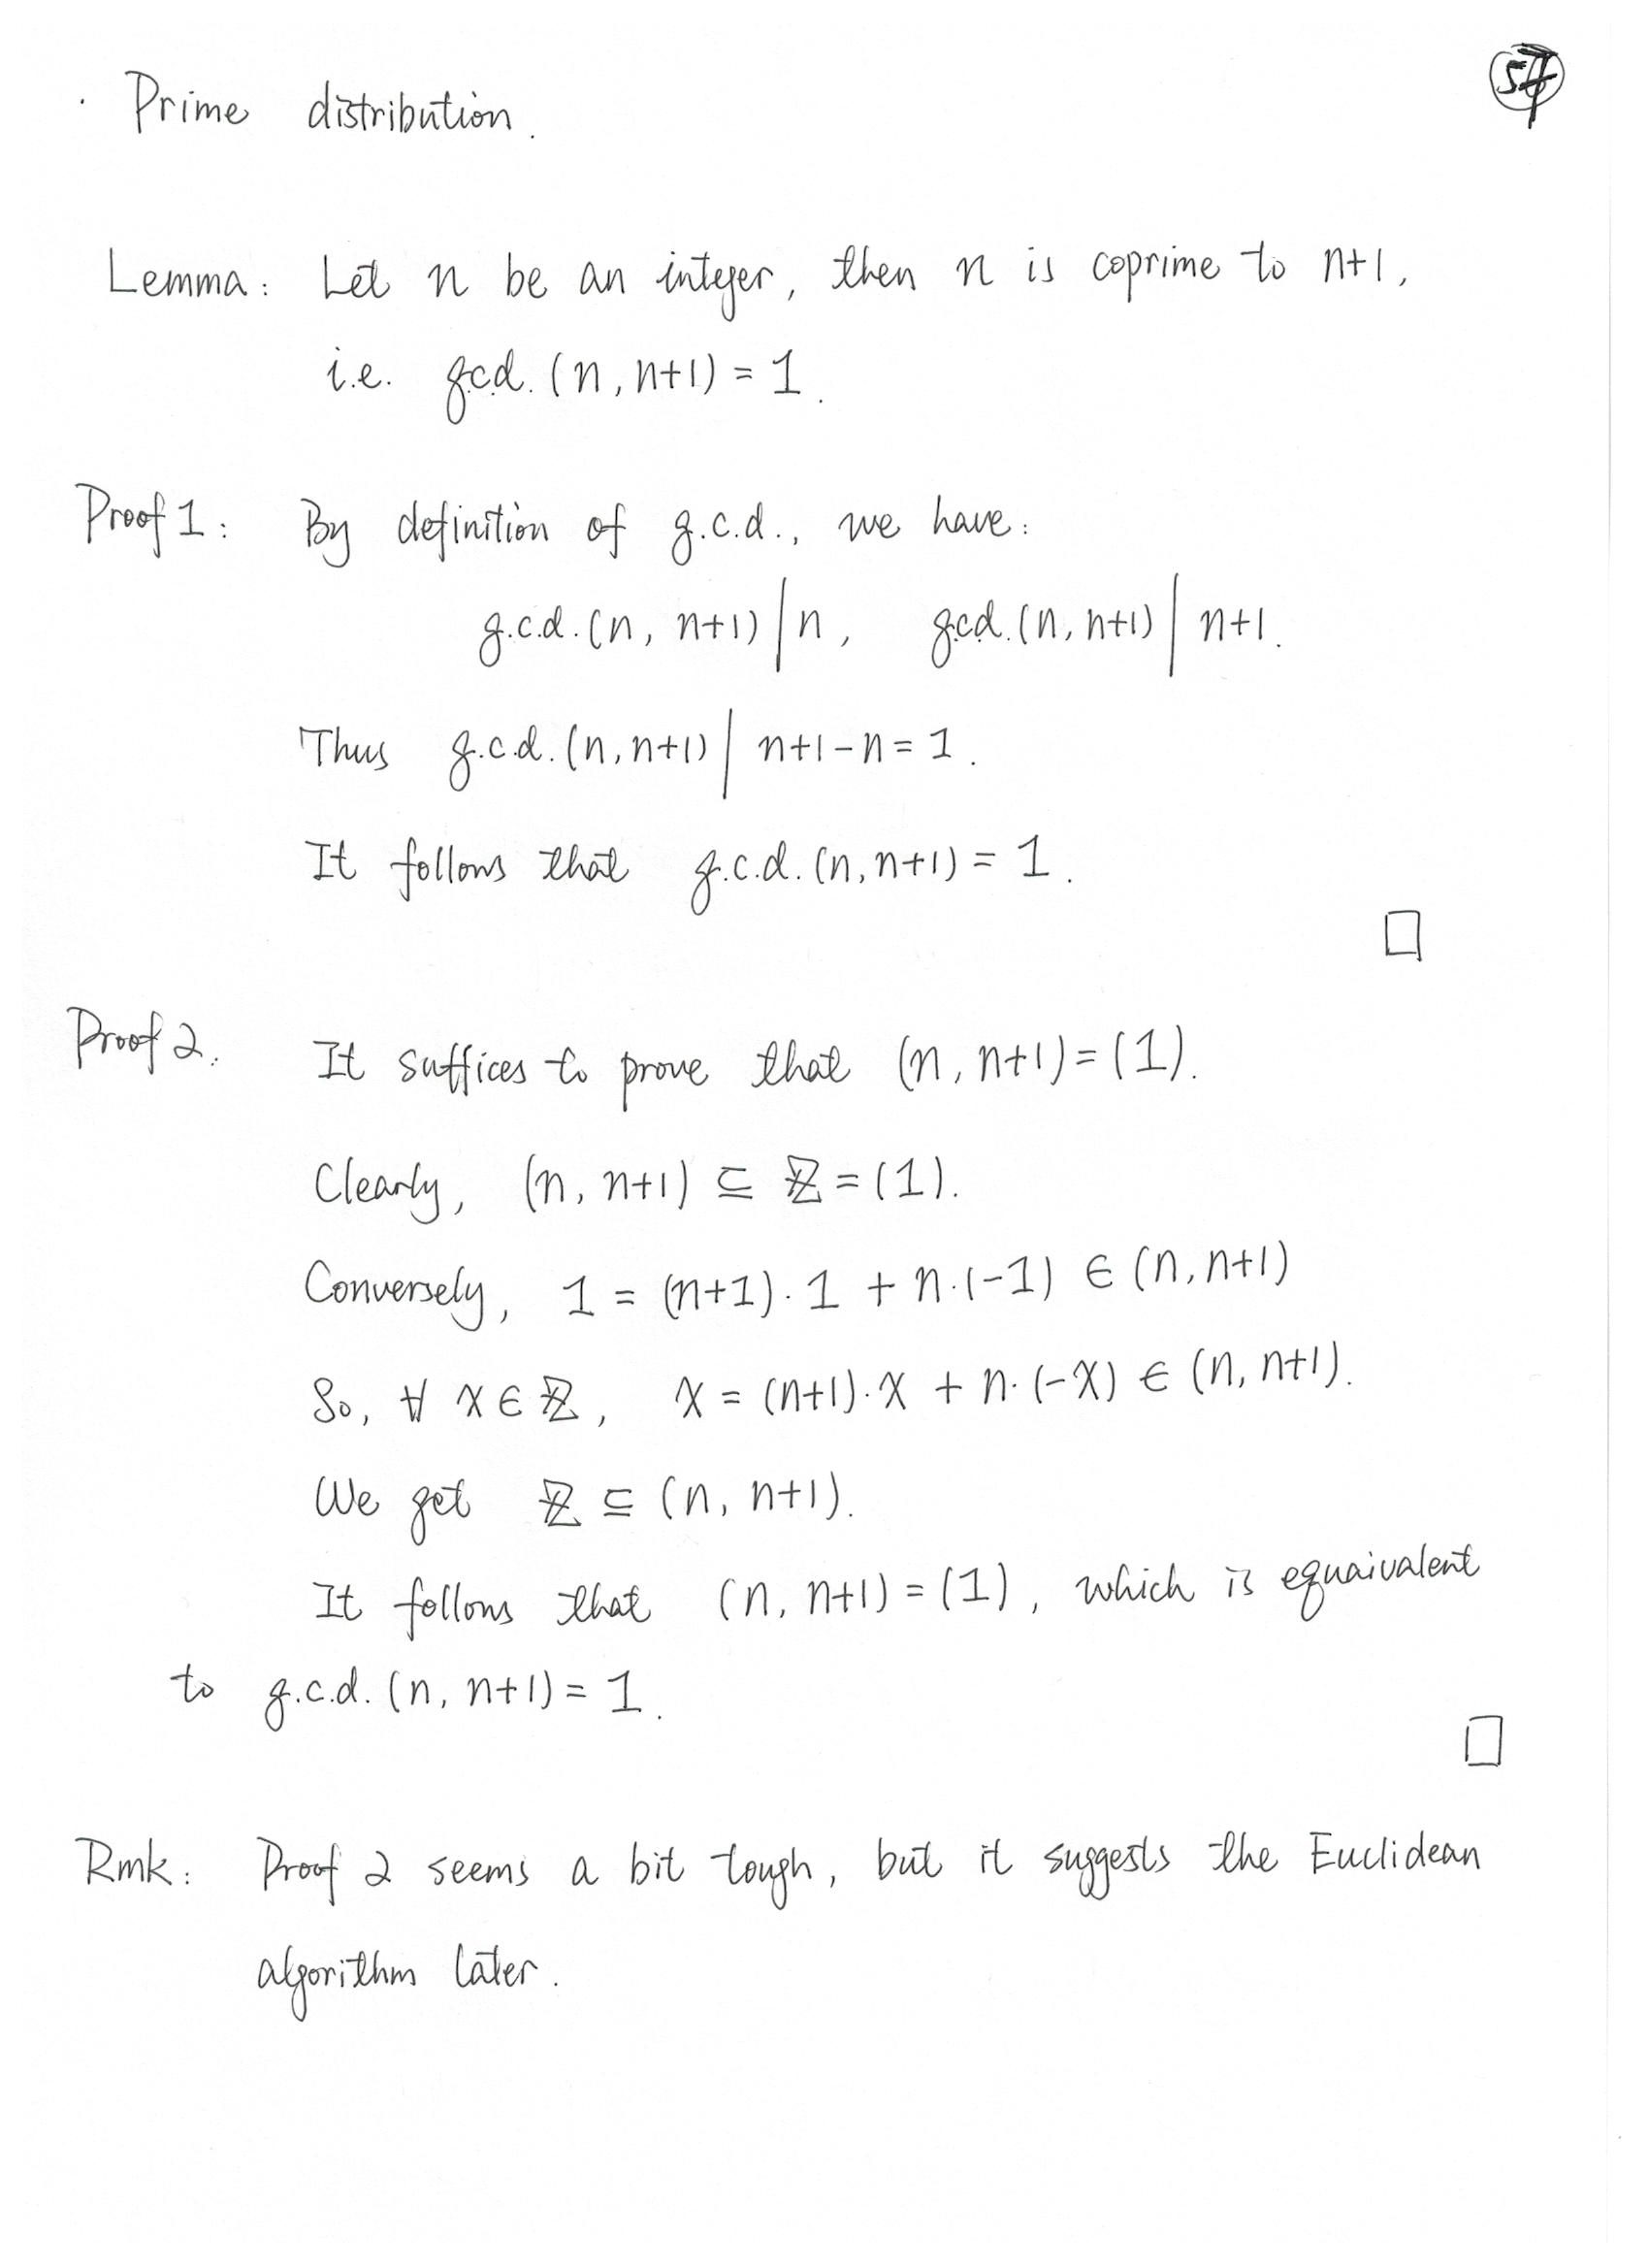 · Prime distribution.
57
Lemma: Let n be an integer, then n is coprime to n+1,
i.e. g.c.d. (n, n+1) = 1.
Proof 1: By definition of g.c.d., we have:
g.c.d. (n, n+1) | n, g.c.d. (n, n+1) | n+1.
Thus g.c.d. (n, n+1) | n+1-n = 1.
It follows that g.c.d. (n, n+1) = 1.
□
Proof 2. It suffices to prove that (n, n+1) = (1).
Clearly, (n, n+1) ⊆ ℤ = (1).
Conversely, 1 = (n+1)·1 + n·(-1) ∈ (n, n+1)
So, ∀ x ∈ ℤ, x = (n+1)·x + n·(-x) ∈ (n, n+1).
We get ℤ ⊆ (n, n+1).
It follows that (n, n+1) = (1), which is equaivalent
to g.c.d. (n, n+1) = 1.
□
Rmk: Proof 2 seems a bit tough, but it suggests the Euclidean
algorithm later.